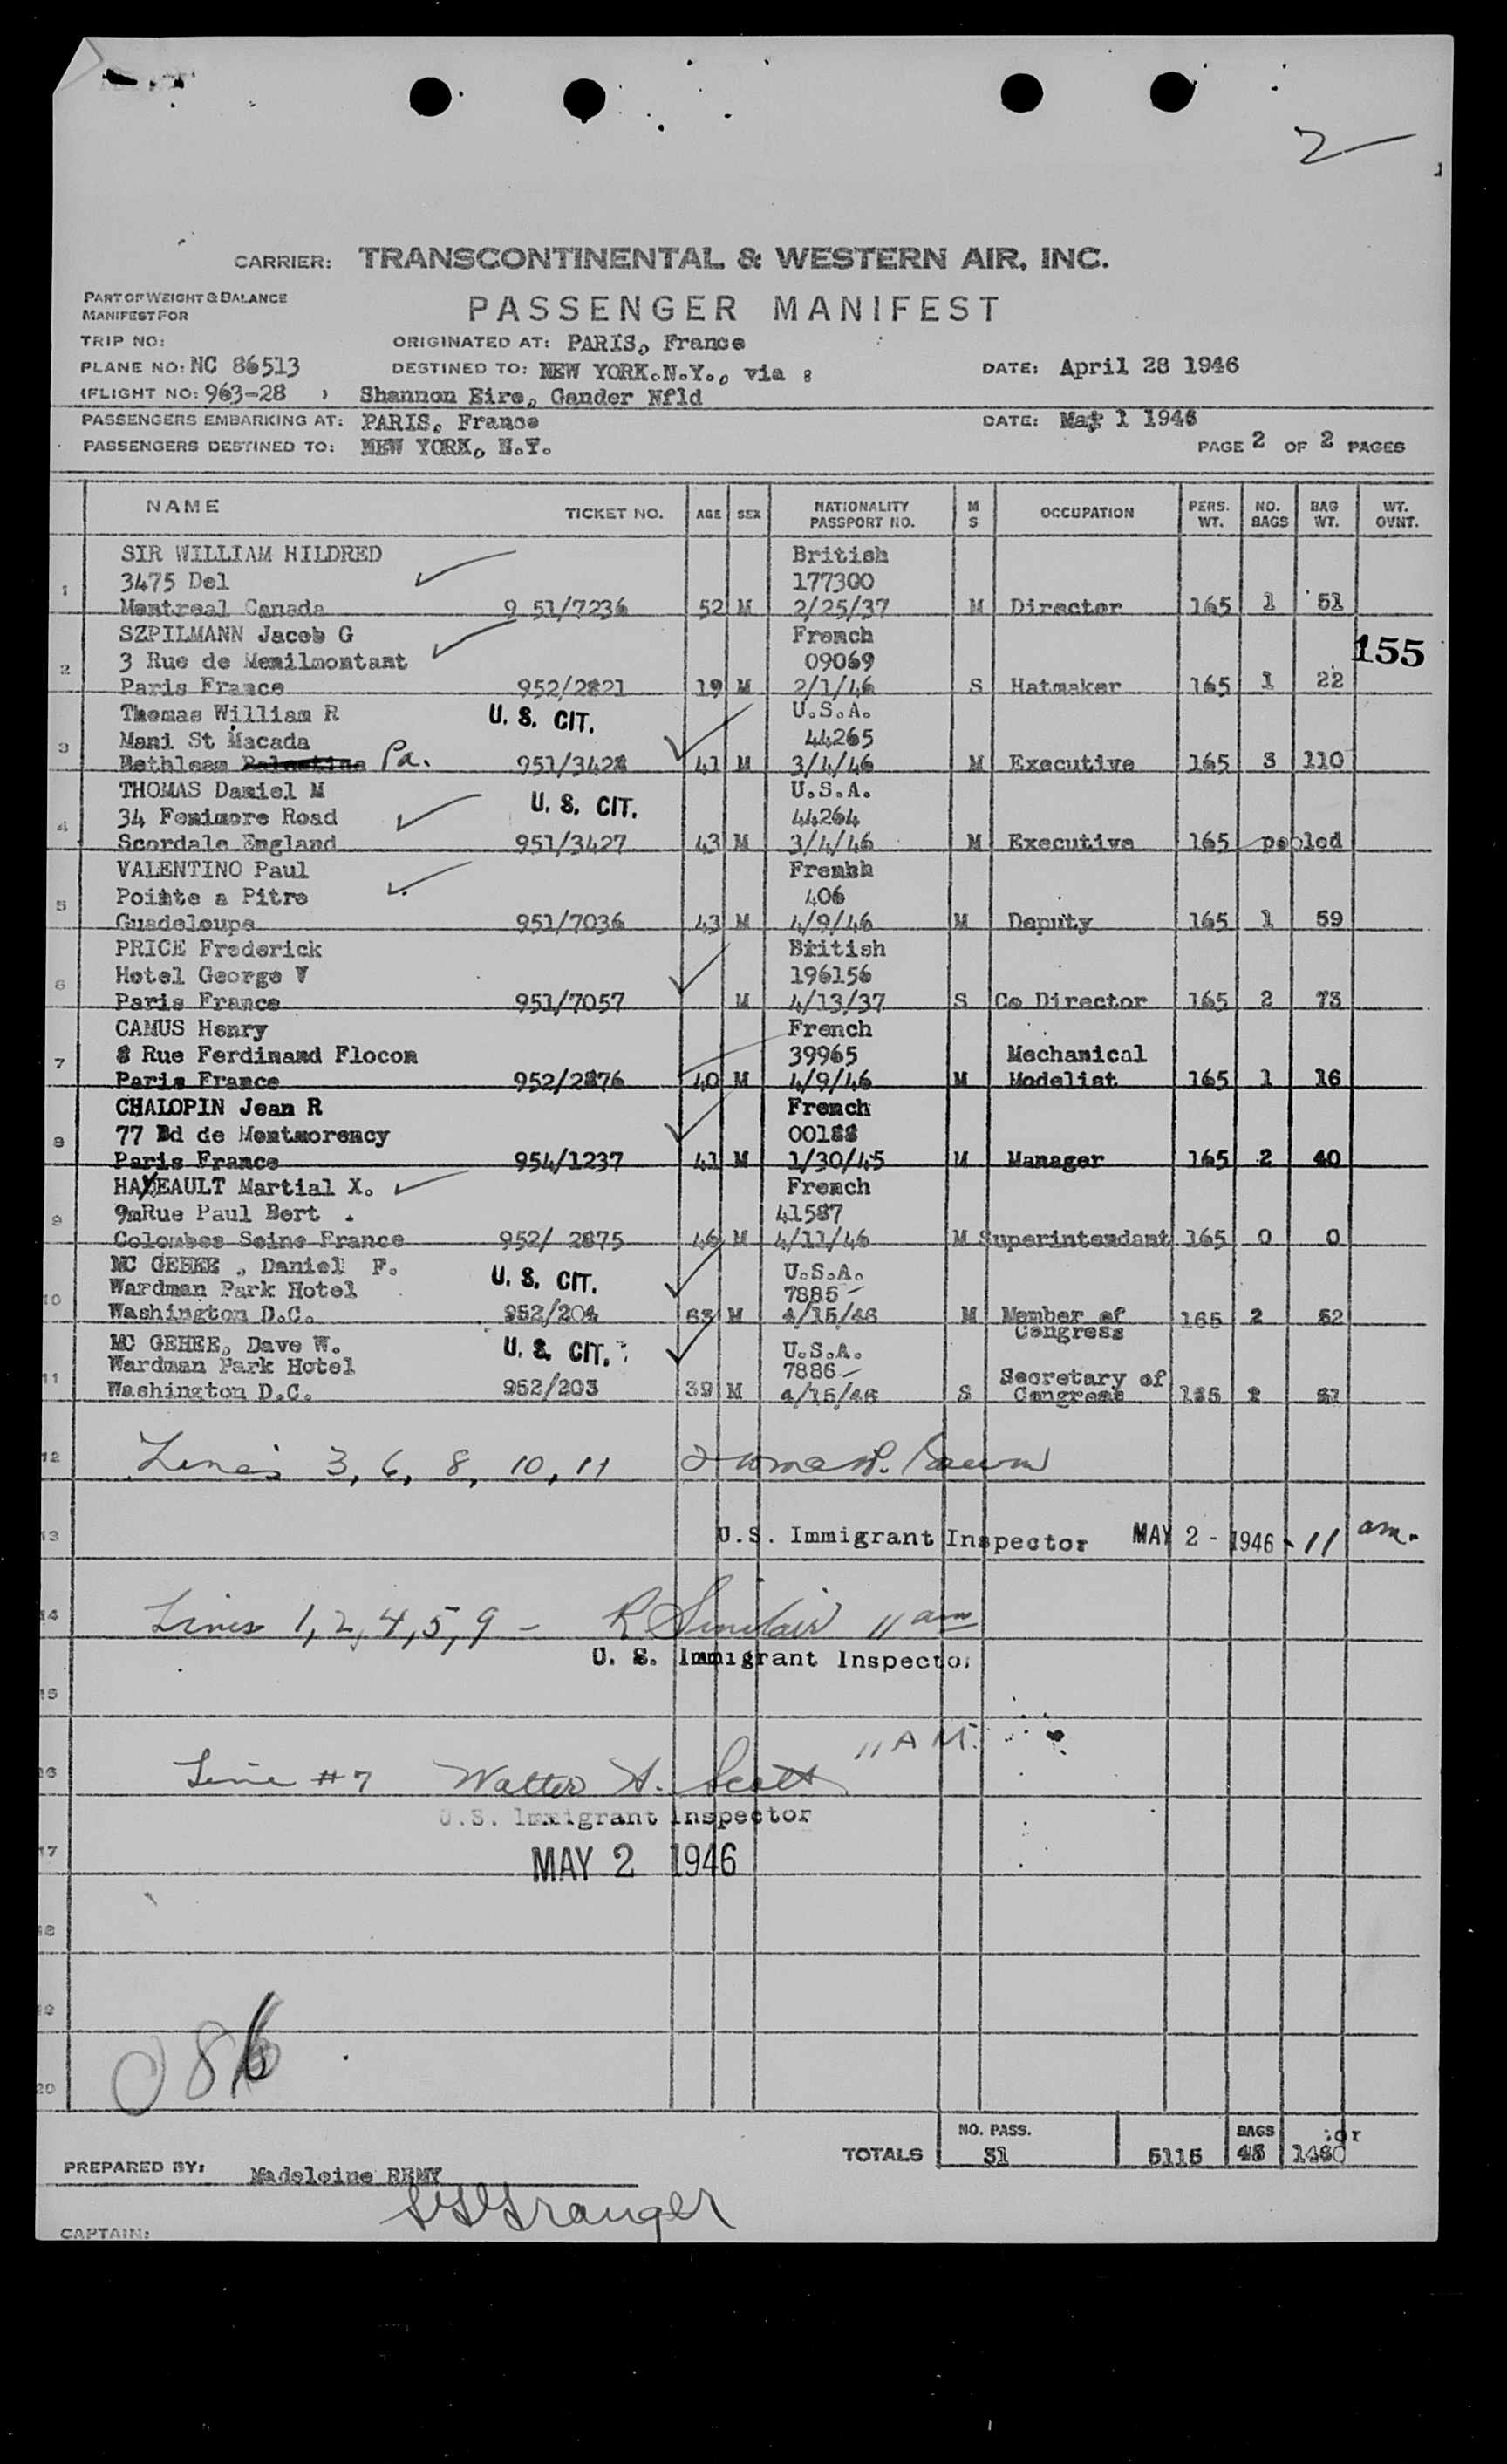 2
CARRIER: TRANSCONTINENTAL & WESTERN AIR, INC.
PART OF WEIGHT & BALANCE
MANIFEST FOR
PASSENGER MANIFEST
TRIP NO:
ORIGINATED AT: PARIS, France
PLANE NO: NC 86513
DESTINED TO: NEW YORK.N.Y., via :
DATE: April 28 1946
(FLIGHT NO: 963-28 )
Shannon Eire, Gander Nfld
PASSENGERS EMBARKING AT: PARIS, France
DATE: May 1 1946
PASSENGERS DESTINED TO: NEW YORK, N.Y.
PAGE 2 OF 2 PAGES
NAME TICKET NO. AGE SEX NATIONALITY PASSPORT NO. M S OCCUPATION PERS. WT. NO. BAGS BAG WT. WT. OVNT.
SIR WILLIAM HILDRED British
1 3475 Del 177300
Montreal Canada 9 51/7236 52 M 2/25/37 M Director 165 1 51
SZPILMANN Jacob G French
155
2 3 Rue de Menilmontant 09069
Paris France 952/2821 19 M 2/1/46 S Hatmaker 165 1 22
Thomas William R U. S. CIT. U.S.A.
3 Mani St Macada 44265
Bethleam Palestine Pa. 951/3428 41 M 3/4/46 M Executive 165 3 110
THOMAS Daniel M U. S. CIT. U.S.A.
4 34 Fenimore Road 44264
Scordale England 951/3427 43 M 3/4/46 M Executive 165 pooled
VALENTINO Paul French
5 Pointe a Pitre 406
Guadeloupe 951/7036 43 M 4/9/46 M Deputy 165 1 59
PRICE Frederick British
6 Hotel George V 196156
Paris France 951/7057 M 4/13/37 S Co Director 165 2 73
CAMUS Henry French
7 8 Rue Ferdinand Flocon 39965 Mechanical
Paris France 952/2876 40 M 4/9/46 M Modelist 165 1 16
CHALOPIN Jean R French
8 77 Bd de Montmorency 00188
Paris France 954/1237 41 M 1/30/45 M Manager 165 2 40
HAYEAULT Martial X. French
9 9mRue Paul Bert . 41587
Colombes Seine France 952/ 2875 46 M 4/11/46 M Superintendant 165 0 0
MC GEHEE , Daniel F. U. S. CIT. U.S.A.
10 Wardman Park Hotel 7885
Washington D.C. 952/204 63 M 4/15/46 M Member of Congress 165 2 52
MC GEHEE, Dave W. U. S. CIT. U.S.A.
11 Wardman Park Hotel 7886 Secretary of
Washington D.C. 952/203 39 M 4/15/46 S Congress 165 51
12 Lines 3, 6, 8, 10, 11
13 U.S. Immigrant Inspector MAY 2 - 1946 - 11 am.
14 Lines 1, 2, 4, 5, 9 - R Sinclair 11 am
U. S. Immigrant Inspector
15
11 AM.
16 Line #7 Walter A. Scott
U.S. Immigrant Inspector
17 MAY 2 1946
18
19
086
20
NO. PASS. BAGS
TOTALS 31 5115 48 1480
PREPARED BY: Madeleine REMY
Granger
CAPTAIN: